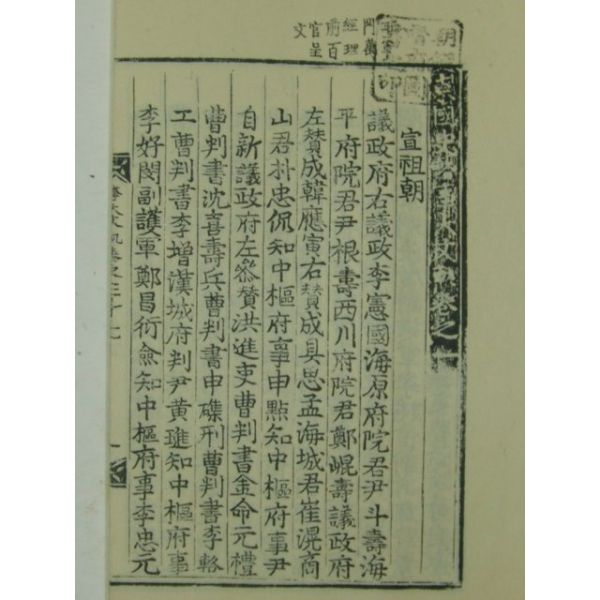 門萬
經理
前百
官呈
文
宣祖朝
議政府右議政李憲國海原府院君尹斗壽海
平府院君尹根壽西川府院君鄭崐壽議政府
左賛成韓應寅右賛成具思孟海城君崔滉商
山君朴忠侃知中樞府事申點知中樞府事尹
自新議政府左叅賛洪進吏曹判書金命元禮
曹判書沈喜壽兵曹判書申磼刑曹判書李輅
工曹判書李增漢城府判尹黃璡知中樞府事
李好閔副護軍鄭昌衍僉知中樞府事李忠元
事大文軌卷之三十